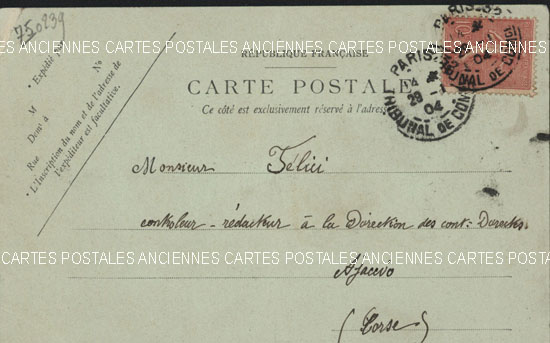 750239
CARTES POSTALES ANCIENNES CARTES POSTALES ANCIENNES CARTES POSTALES ANCIENNES
RÉPUBLIQUE FRANÇAISE
CARTE POSTALE
Ce côté est exclusivement réservé à l'adresse
Expédié
No
M
Demt à
Rue
L'Inscription du nom et de l'adresse de
l'expéditeur est facultative.
PARIS-52
04
TRIBUNAL DE COM
PARIS
29
04
TRIBUNAL DE COM
Monsieur Félici
controleur - rédacteur à la Direction des cont: Directes.
CARTES POSTALES ANCIENNES CARTES POSTALES ANCIENNES CARTES POSTALES ANCIENNES
Ajaccio
(Corse)